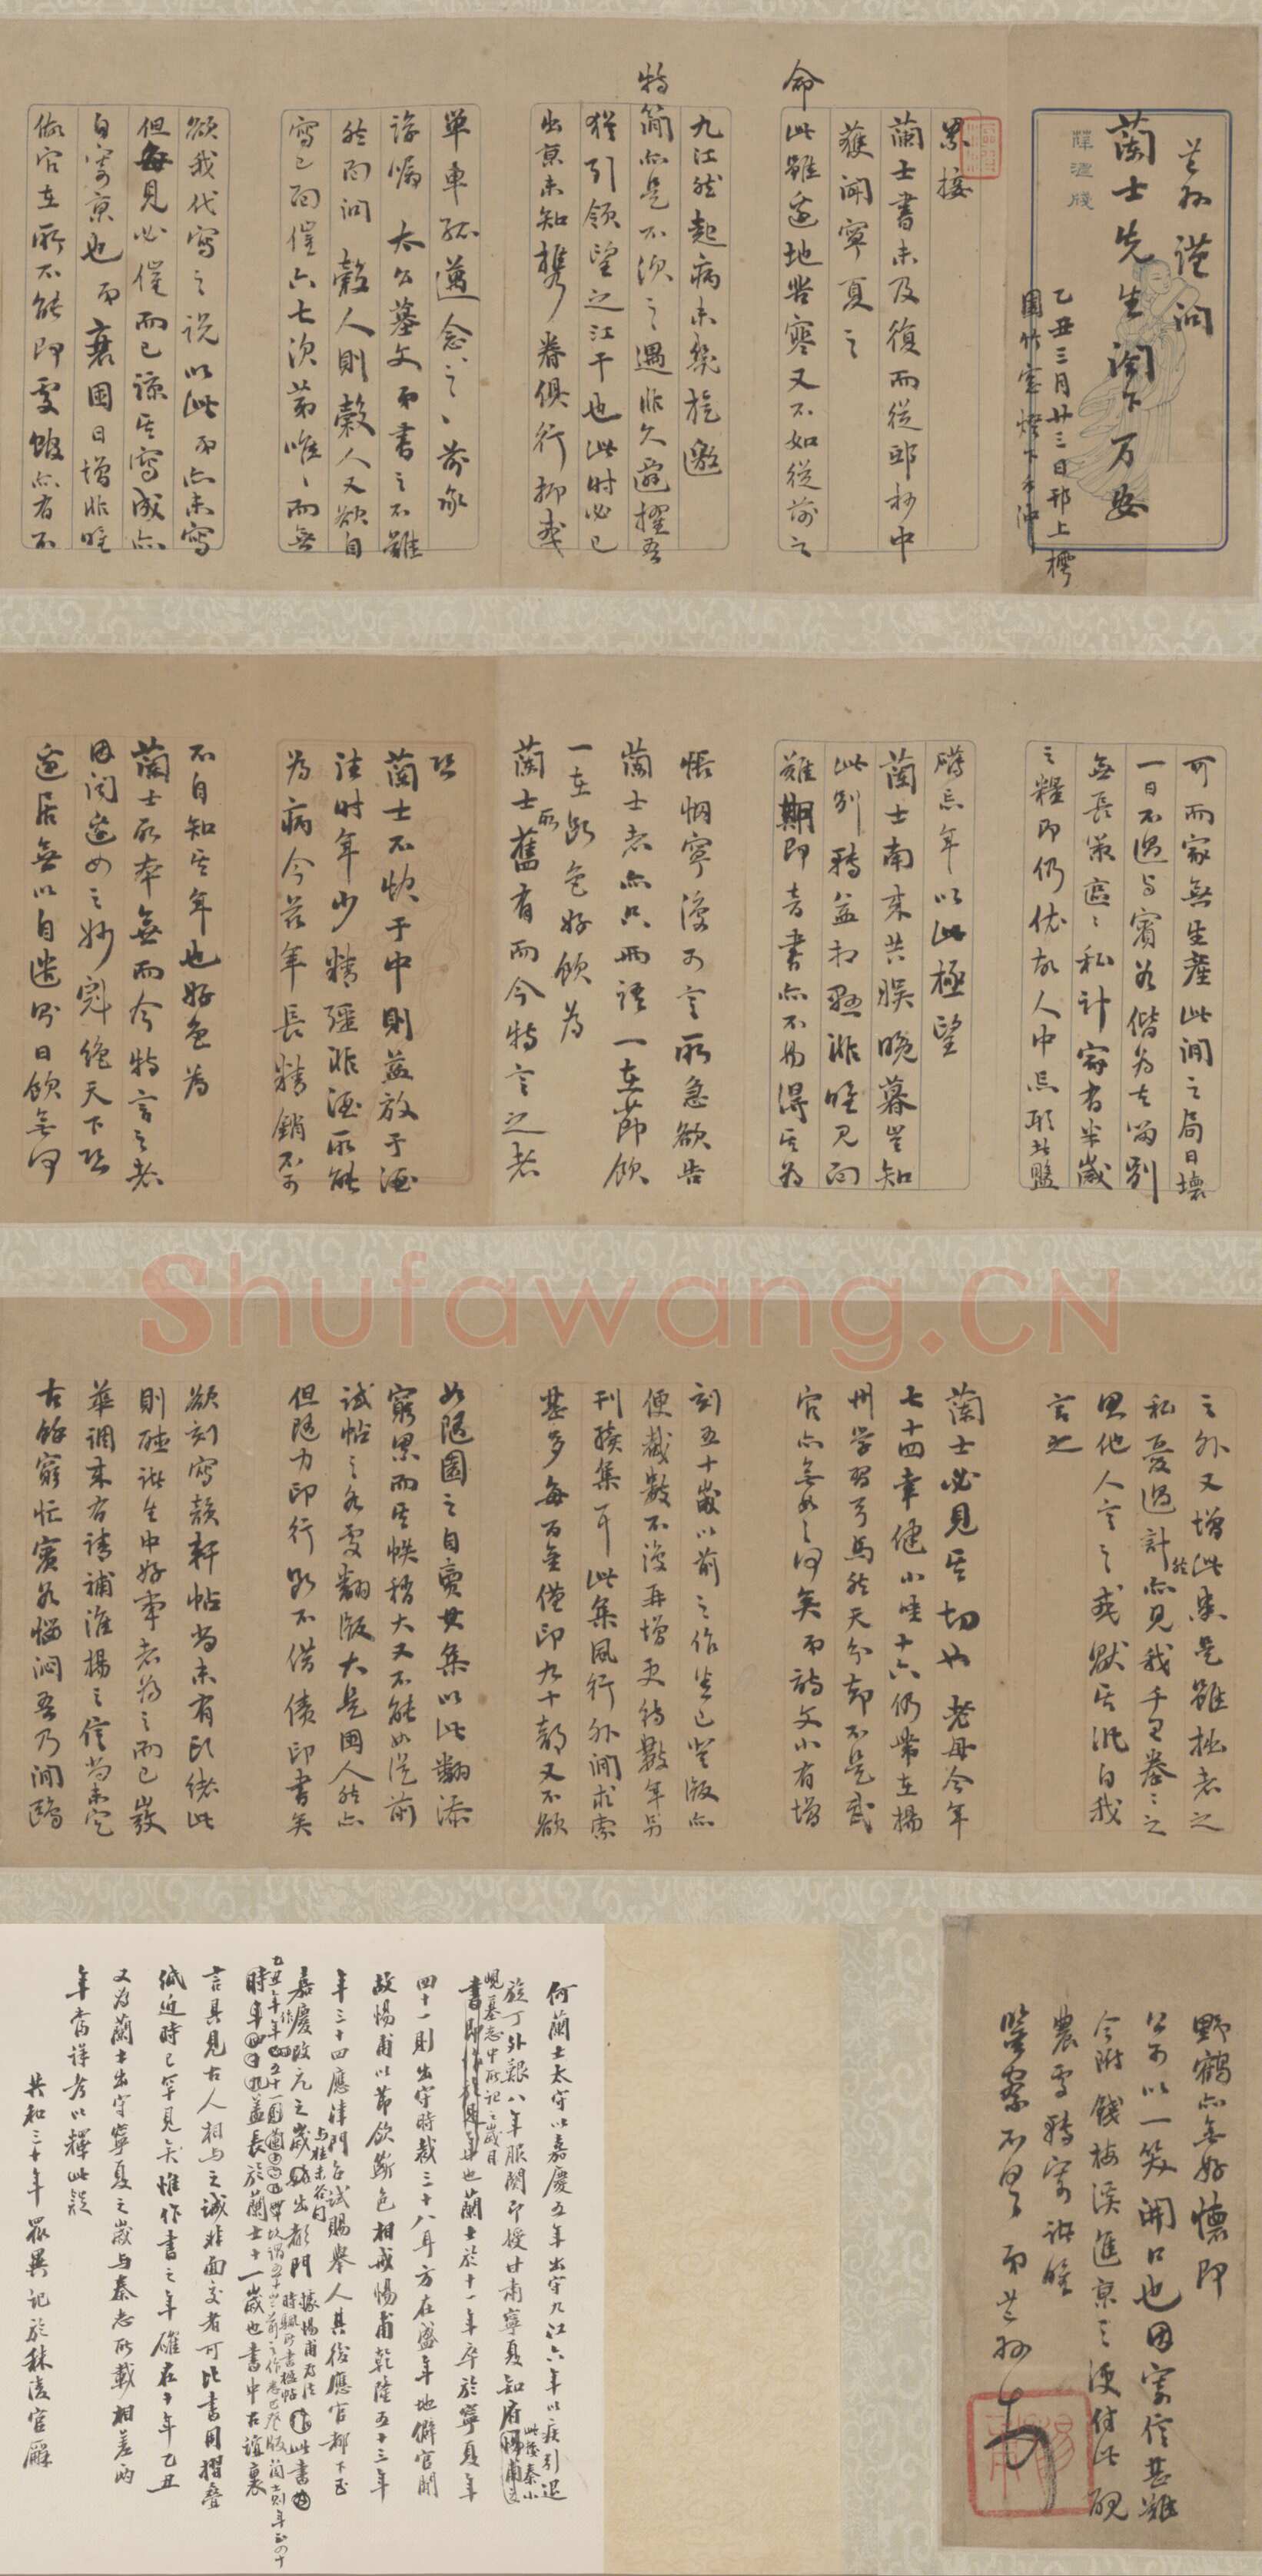 芑孫謹問
蘭士先生閣下萬安
乙丑三月廿三日邗上樗
園竹窗燈下方沖
蟬隱牋
累接
蘭士書未及復而從邸抄中
獲聞寧夏之
命此雖邊地苦寒又不如從前之
九江然起病未幾旋邀
特簡亦是不次之遇非久遷擢吾
猶引領望之江干也此時必已
出京未知攜眷俱行抑或
單車孤邁念之之前承
諈囑太公墓文弟書之不難
然面問穀人則穀人又欲自
寫已面催六七次第唯唯而無
欲我代寫之說以此弟亦未寫
但每見必催而已諒其寫成亦
自寄京也弟衰困日增非唯
做官在所不能即受餼亦有不
可而家無生產此間之局日壞
一日不過與賓谷偕為去留別
無長策區區私計窬者半歲
之糧即仍依故人中忘形者盤
礴忘年以此極望
蘭士南來共娛晚暮豈知
此別轉益相懸非唯見面
難期即音書亦不易得其為
悵惘寧復可言所急欲告
蘭士者亦只兩語一在節飲
一在斷色好飲為
蘭士所舊有而今特言之者恐
蘭士不快于中則益放于酒
往時年少精彊非酒所能
為病今茲年長精銷不可
不自知其年也好色為
蘭士所本無而今特言之者
因聞邊女之妙冠絕天下恐
邊居無以自遣則日飲無何
之外又增此患是雖拙者之
私憂過計然亦見我千里拳拳之
思他人言之或厭其汎自我
言之
蘭士必見其切也老母今年
七十四幸健小兒十六仍帶在揚
州學習弓馬然天分卻不是武
官亦無如之何矣弟詩文小有增
刻五十歲以前之作皆已登版亦
便截數不復再增更待數年另
刊續集耳此集風行外間求索
甚多每百金僅印九十部又不欲
如隨園之自賣其集以此翻添
窮累而其帙稍大又不能如從前
試帖之各處翻版大是困人然亦
但隨力印行斷不借債印書矣
欲刻寫韻軒帖尚未有頭緒此
則硾諸生中好事者為之而已嚴
華調來有請補淮揚之信尚未定
古餘窮忙賓谷惱悶吾乃閒鷗
野鶴亦無好懷即
公可以一笑開口也因寄信甚難
今附錢梅溪進京之便付諸硯
農處轉寄諸唯
鑒察不具弟芑孫頓首
何蘭士太守以嘉慶五年出守九江六年以疾引退
旋丁外艱八年服闋即授甘肅寧夏知府
書即作於是年也蘭士於十一年卒於寧夏年
四十一則出守時裁三十八耳方在盛年地僻官閒
故惕甫以節飲斷色相戒惕甫乾隆五十三年
年三十四應津門召試賜舉人其後應官都下至
嘉慶改元之歲與桂未谷同出都門
蓋長於蘭士十一歲也書中古誼裏
言具見古人相與之誠非面交者可比書用摺疊
紙近時已罕見矣惟作書之年確在十年乙丑
又為蘭士出守寧夏之歲與秦志所載相差兩
年當詳考以釋此疑
共和三十年眾異記於秣陵官廨
Shufawang.CN